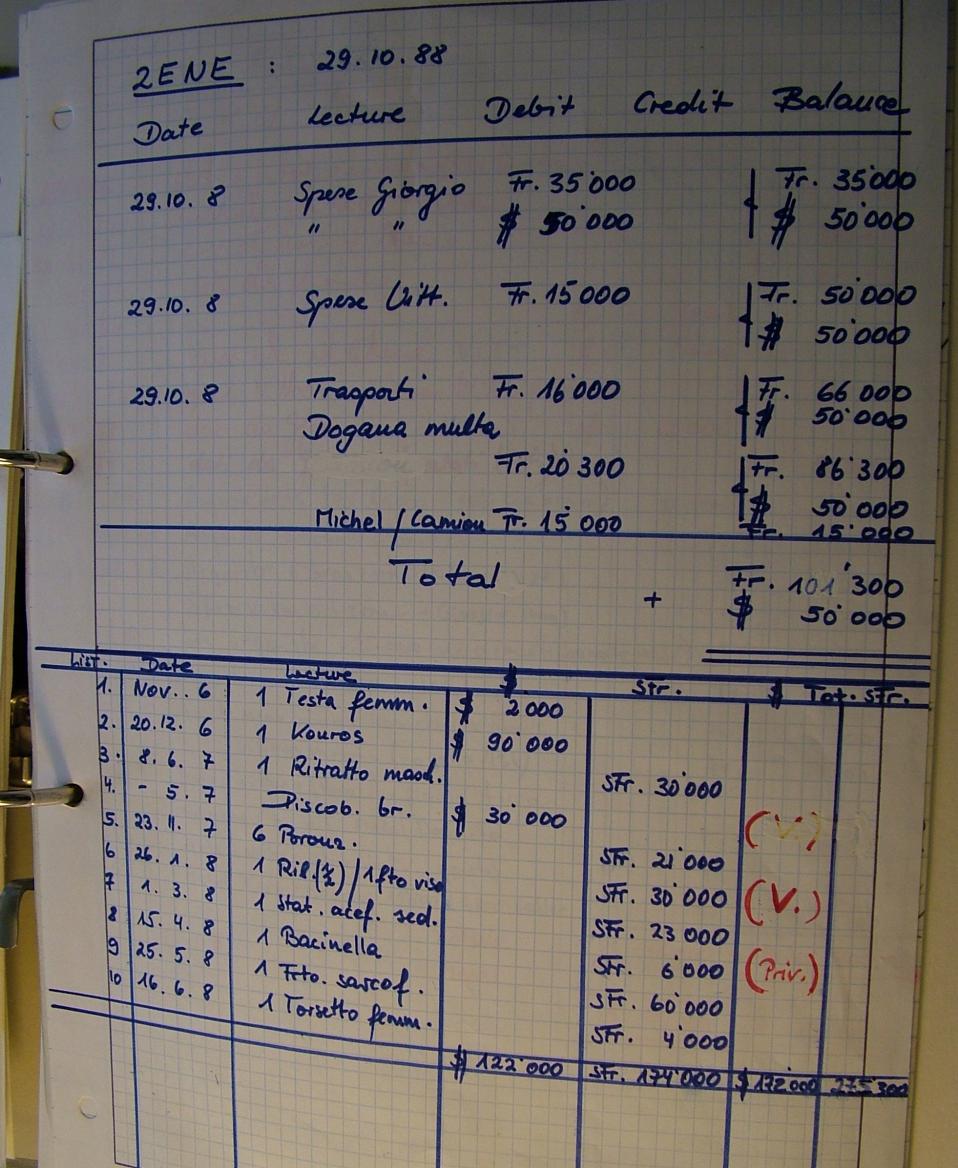 2ENE : 29.10.88
Date Lecture Debit Credit Balance
29.10.8 Spese Giorgio Fr. 35'000 Fr. 35'000
" " $ 50'000 $ 50'000
29.10.8 Spese Fr. 15'000 Fr. 50'000
$ 50'000
29.10.8 Trasporti Fr. 16'000 Fr. 66'000
$ 50'000
Dogana multa
Fr. 20'300 Fr. 86'300
$ 50'000
Michel / Camion Fr. 15'000 Fr. 15'000
Total + Fr. 101'300
$ 50'000
List. Date Lecture $ Sfr. $ Tot. Sfr.
1. Nov.. 6 1 Testa femm. $ 2000
2. 20.12. 6 1 Kouros $ 90'000
3. 8. 6. 7 1 Ritratto masch. SFr. 30'000
4. - 5. 7 Discob. br. $ 30'000 (V.)
5. 23.11. 7 6 SFr. 21'000
6 26.1. 8 1 Ril.(½)/1 fto viso SFr. 30'000 (V.)
7 1. 3. 8 1 Stat. acef. sed. SFr. 23'000
8 15. 4. 8 1 Bacinella SFr. 6'000 (Priv.)
9 25. 5. 8 1 Frto. sarcof. SFr. 60'000
10 16. 6. 8 1 Torsetto femm. SFr. 4'000
$ 122'000 SFr. 174'000 $ 172'000 275'300